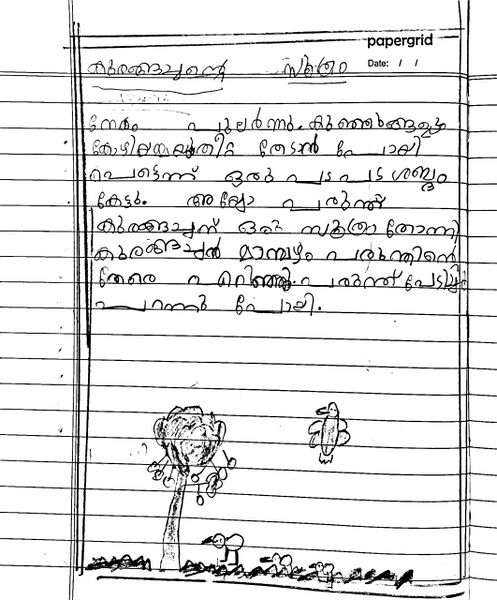 papergrid
Date: / /
കുരങ്ങച്ചന്റെ സൂത്രം
നേരം പുലർന്നു. കുഞ്ഞുങ്ങളും
കോഴിയമ്മയും തീറ്റ തേടാൻ പോയി
പെട്ടെന്ന് ഒരു പടപട ശബ്ദം
കേട്ടു. അയ്യോ പരുന്ത്
കുരങ്ങച്ചന് ഒരു സൂത്രം തോന്നി
കുരങ്ങച്ചൻ മാമ്പഴം പരുന്തിനെ
നേരെ എറിഞ്ഞു. പരുന്ത് പേടിച്ച്
പറന്നു പോയി.